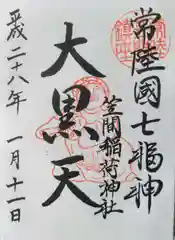 常陸國七福神
笠間稲荷神社
大黒天
平成二十八年 一月十一日